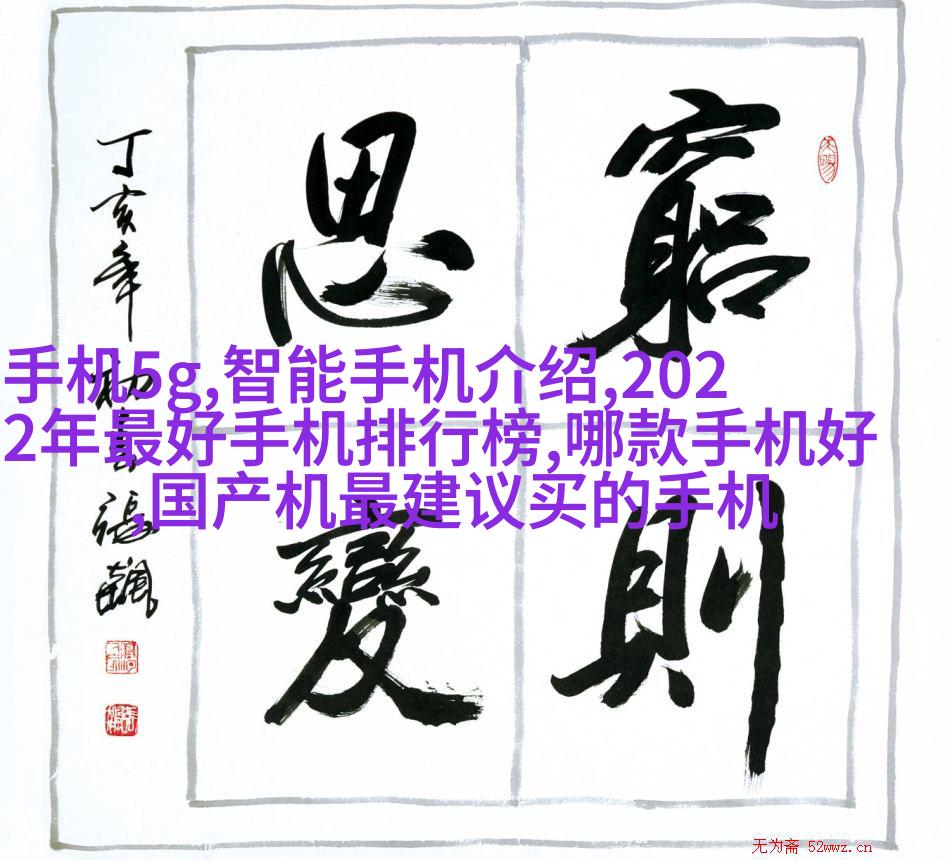 窮則
思變
丁亥年初春張飆
手机5g,智能手机介绍,202
2年最好手机排行榜,哪款手机好
,国产机最建议买的手机
无为斋 52wwz.cn